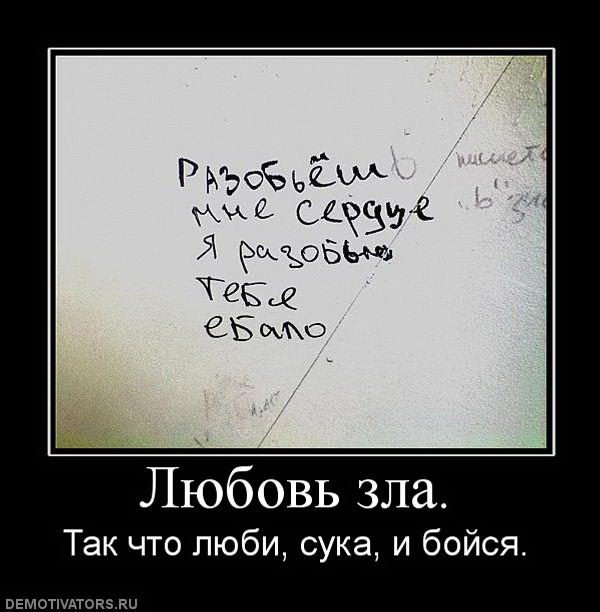 Разобьёшь пишется
мне сердце "ь"
Я разобью
Тебе
ебало
Любовь зла.
Так что люби, сука, и бойся.
DEMOTIVATORS.RU